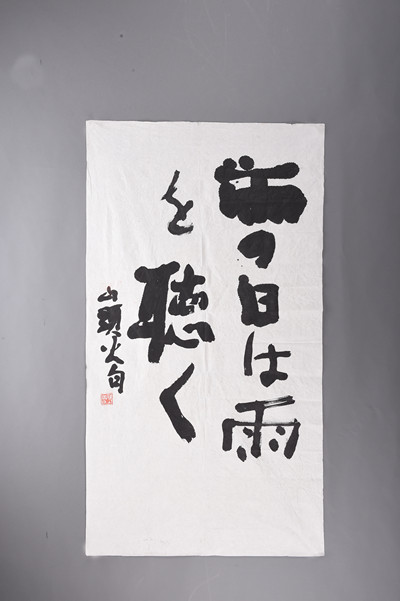 雨の日は雨
を聴く
山頭火句